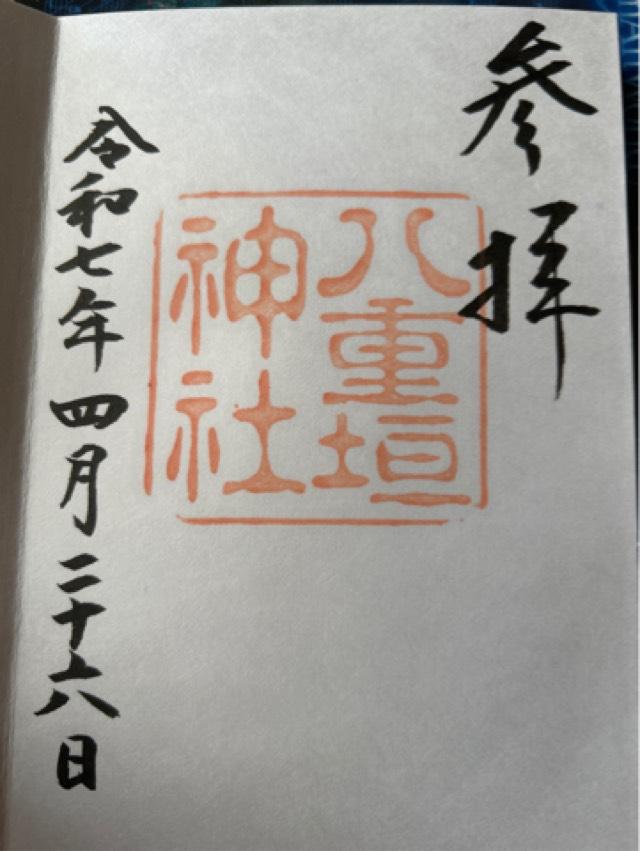 參拝
八重垣
神社
令和七年四月二十六日